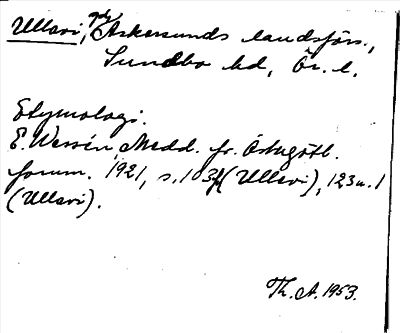 Ullavi, gd, Askersunds landsförs.,
Sundbo hd, Ör. l.
Etymologi.
E. Wessén Medd. fr. Östergötl.
fornm. 1921, s. 103 f (Ullevi), 123 n. 1
(Ullavi).
Th. A. 1953.